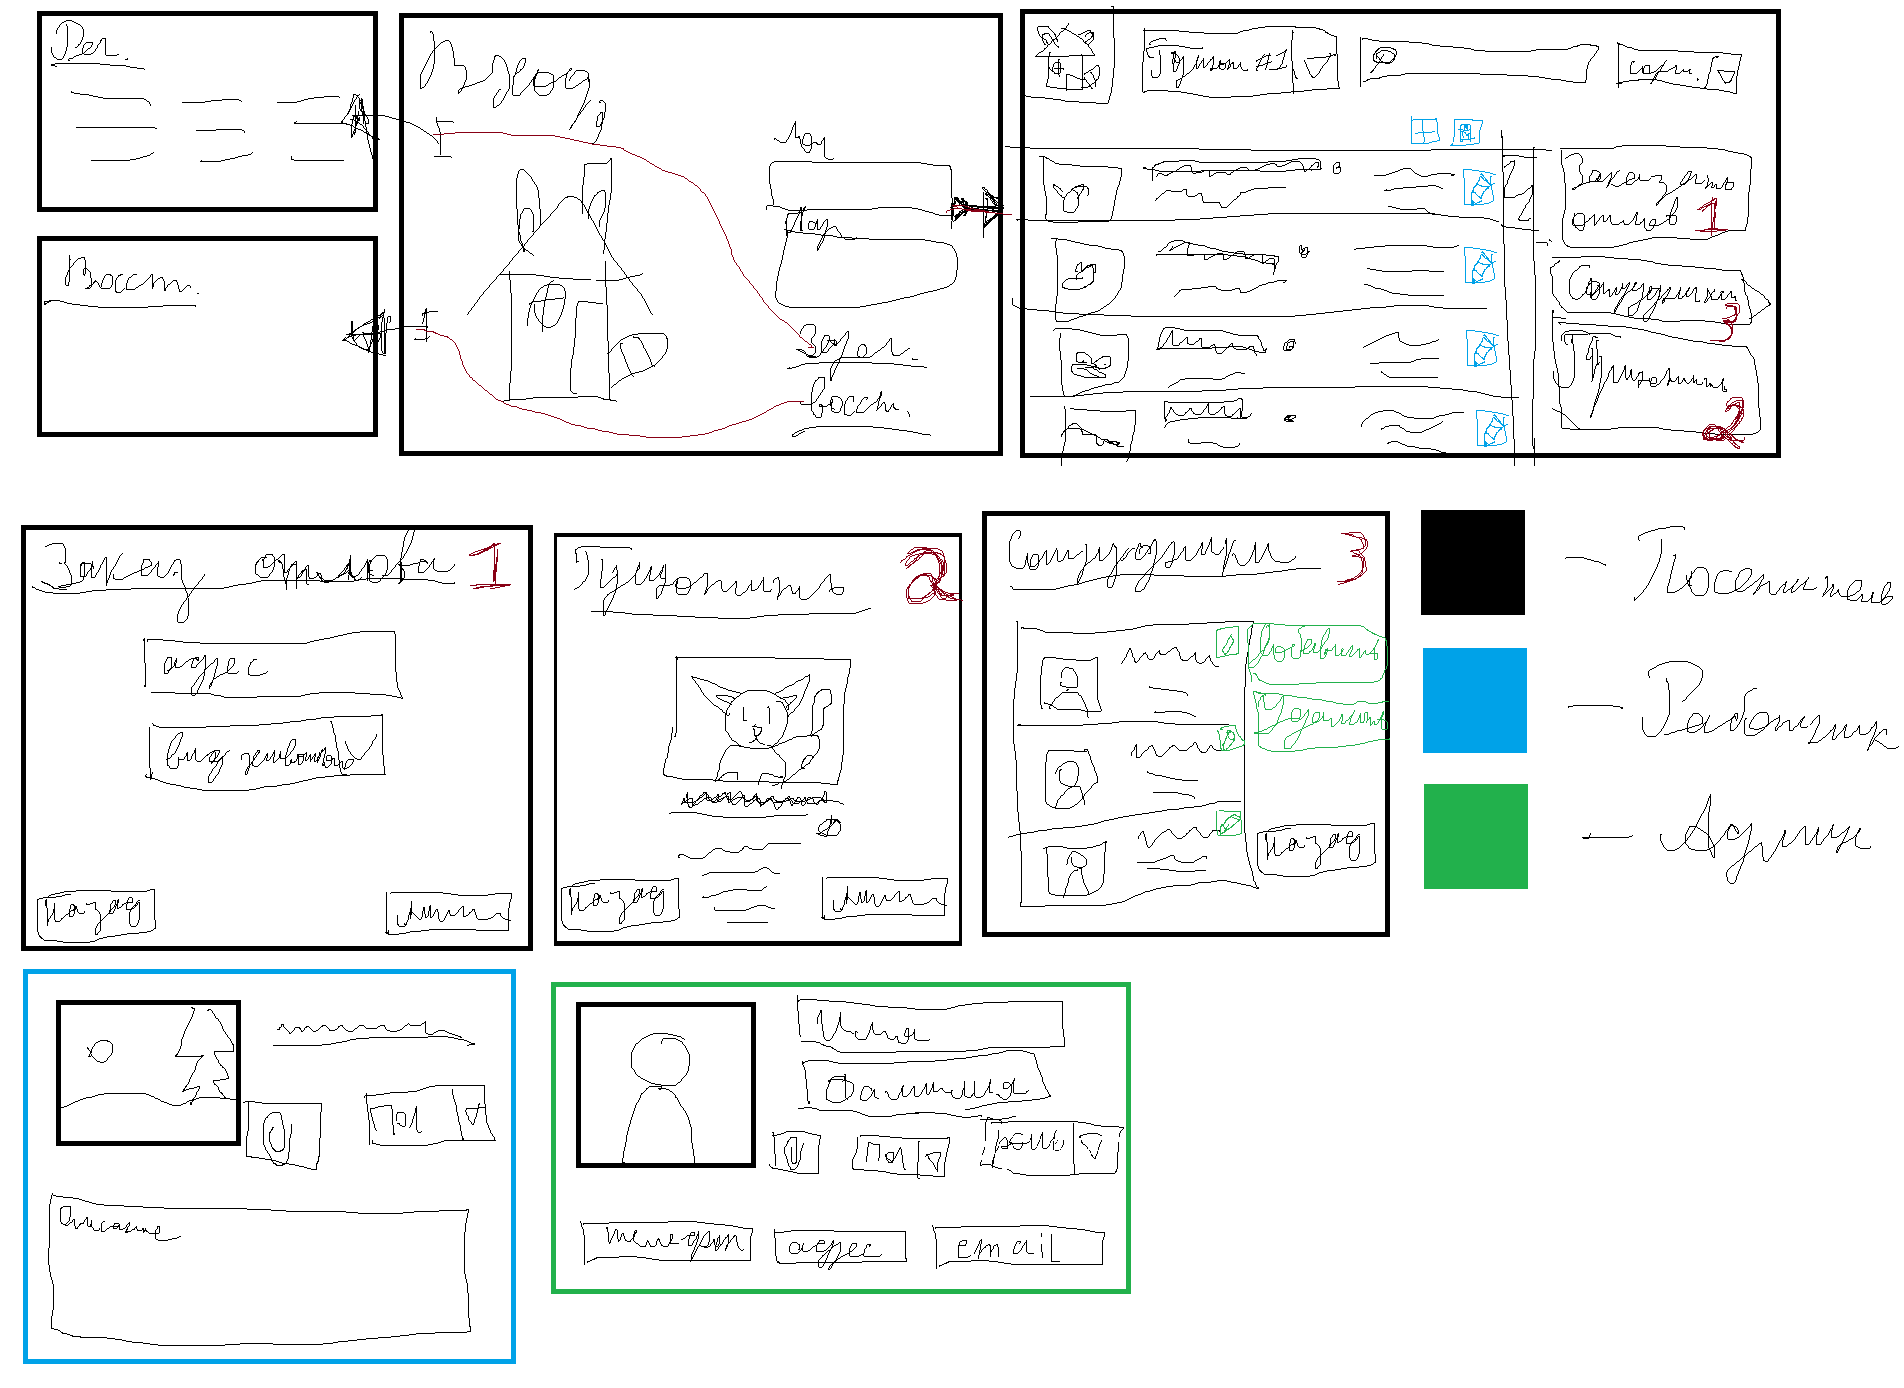 Рег.
Вход
Лог
Пар
Зарег.
восст.
Восст.
Приют #1
сорт.
Заказать
отлов 1
Сотрудники
3
Приютить
2
Заказ отлова 1
адрес
вид животного
Назад
Приютить 2
Назад
Сотрудники 3
Добавить
Удалить
Назад
— Посетитель
— Работник
— Админ
Пол
Описание
Имя
Фамилия
Пол
роль
телефон
адрес
email